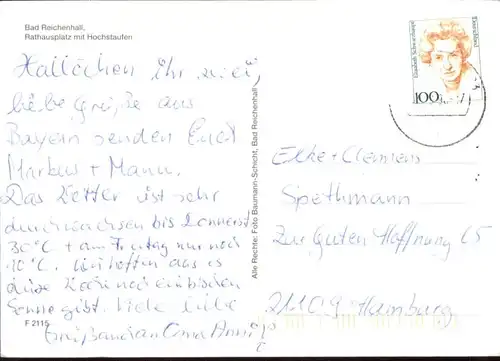 Bad Reichenhall,
Rathausplatz mit Hochstaufen
Hallöchen ihr zwei,
liebe Grüße aus
Bayern senden Euch
Markus + Manu.
Das Wetter ist sehr
durchwachsen bis Donnerst.
30°C + am Freitag nur noch
10°C. Wir hoffen das es
diese Woche noch ein bischen
Sonne gibt. Viele liebe
Grüße an
F 2115
Alle Rechte: Foto Baumann-Schicht, Bad Reichenhall
Elisabeth Schwarzhaupt
Deutschland
100
Elke + Clemens
Spethmann
Zur Guten Hoffnung 65
21109 Hamburg